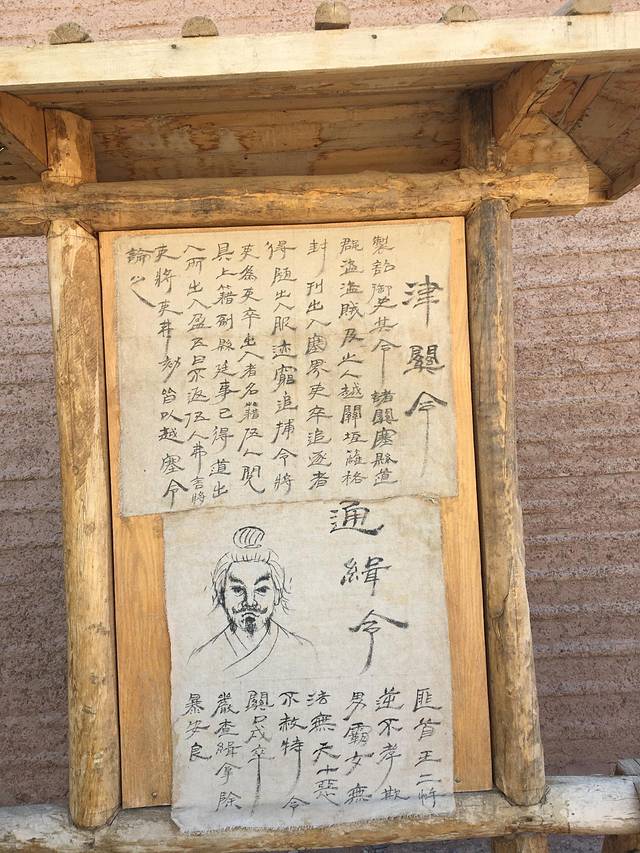 津關令
製詔御史其令諸關塞縣道
群盜盜賊及亡人越關垣離格
封刊出入塞界吏卒追逐者
得隨出入服迹窮追捕令將
吏為吏卒出入者名籍伍人閱
具上籍副縣廷事已得道出
入所出入盈五日不返伍人弗言將
吏將吏弗劾皆以越塞令
論之
通緝令
匪首王二忤
逆不孝欺
男霸女無
法無天十惡
不赦特令
關口戍卒
嚴查緝拿除
暴安良